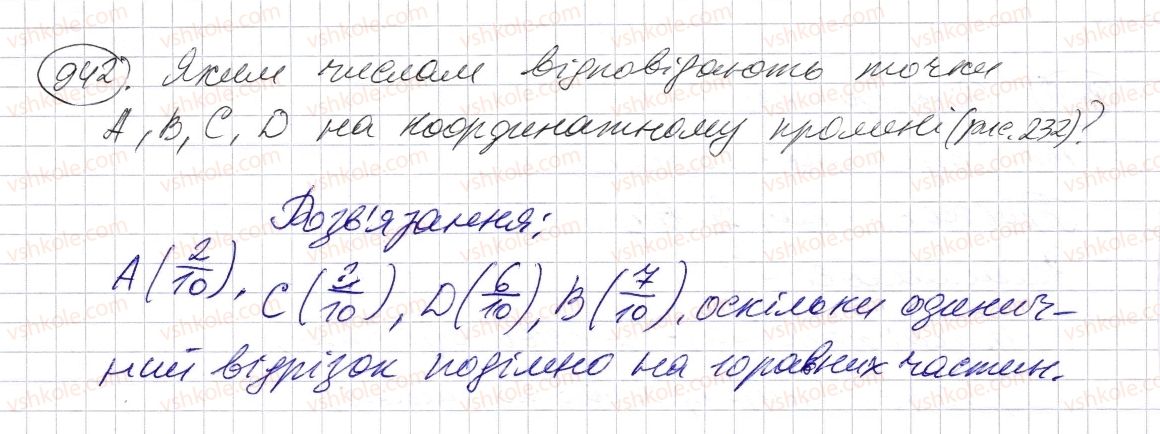 942. Яким числам відповідають точки
A, B, C, D на координатному промені (рис. 232)?
Розв'язання:
A(2/10), C(3/10), D(6/10), B(7/10), оскільки одинич-
ний відрізок поділено на 10 рівних частин.